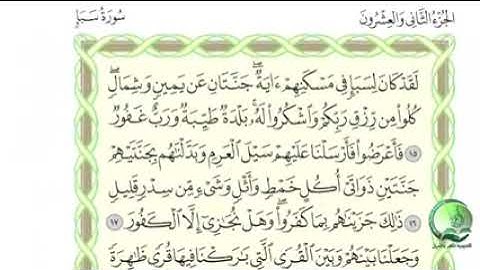 الجزء الثاني والعشرون
سورة سبإ
لَقَدْ كَانَ لِسَبَإٍ فِي مَسْكَنِهِمْ ءَايَةٌ ۖ جَنَّتَانِ عَن يَمِينٍ وَشِمَالٍ ۖ
كُلُوا۟ مِن رِّزْقِ رَبِّكُمْ وَٱشْكُرُوا۟ لَهُۥ ۚ بَلْدَةٌ طَيِّبَةٌ وَرَبٌّ غَفُورٌ
١٥ فَأَعْرَضُوا۟ فَأَرْسَلْنَا عَلَيْهِمْ سَيْلَ ٱلْعَرِمِ وَبَدَّلْنَٰهُم بِجَنَّتَيْهِمْ
جَنَّتَيْنِ ذَوَاتَىْ أُكُلٍ خَمْطٍ وَأَثْلٍ وَشَىْءٍ مِّن سِدْرٍ قَلِيلٍ
١٦ ذَٰلِكَ جَزَيْنَٰهُم بِمَا كَفَرُوا۟ ۖ وَهَلْ نُجَٰزِىٓ إِلَّا ٱلْكَفُورَ ١٧
وَجَعَلْنَا بَيْنَهُمْ وَبَيْنَ ٱلْقُرَى ٱلَّتِى بَٰرَكْنَا فِيهَا قُرًى ظَٰهِرَةً